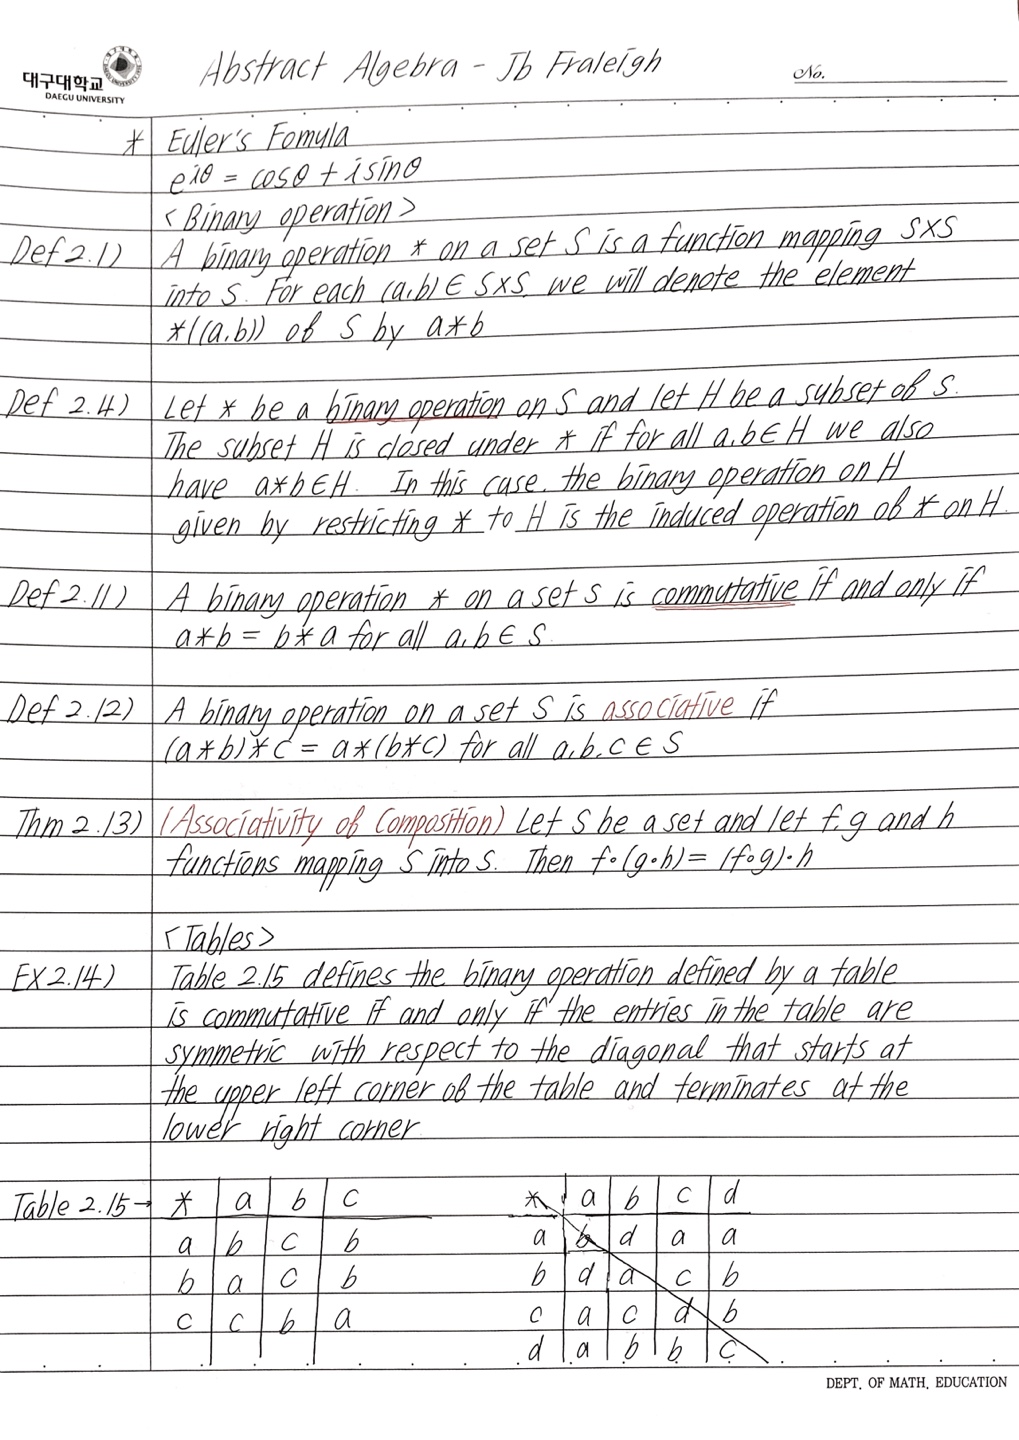 대구대학교
DAEGU UNIVERSITY
Abstract Algebra - Jb Fraleigh
No.
* Euler's Fomula
e^iθ = cosθ + isinθ
<Binary operation>
Def 2.1) A binary operation * on a set S is a function mapping S×S
into S. For each (a,b) ∈ S×S, we will denote the element
*((a,b)) of S by a*b
Def 2.4) Let * be a binary operation on S and let H be a subset of S.
The subset H is closed under * if for all a,b∈H we also
have a*b∈H. In this case, the binary operation on H
given by restricting * to H is the induced operation of * on H.
Def 2.11) A binary operation * on a set S is commutative if and only if
a*b = b*a for all a,b ∈ S
Def 2.12) A binary operation on a set S is associative if
(a*b)*c = a*(b*c) for all a,b,c ∈ S
Thm 2.13) (Associativity of Composition) Let S be a set and let f,g and h
functions mapping S into S. Then f∘(g∘h) = (f∘g)∘h
<Tables>
EX 2.14) Table 2.15 defines the binary operation defined by a table
is commutative if and only if the entries in the table are
symmetric with respect to the diagonal that starts at
the upper left corner of the table and terminates at the
lower right corner
Table 2.15→ * a b c * a b c d
a b c b a b d a a
b a c b b d a c b
c c b a c a c d b
d a b b c
DEPT. OF MATH. EDUCATION